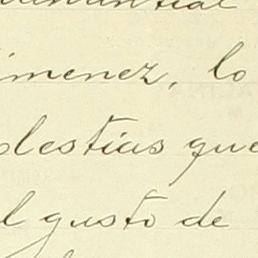 imenez, lo
lestias que
l gusto de